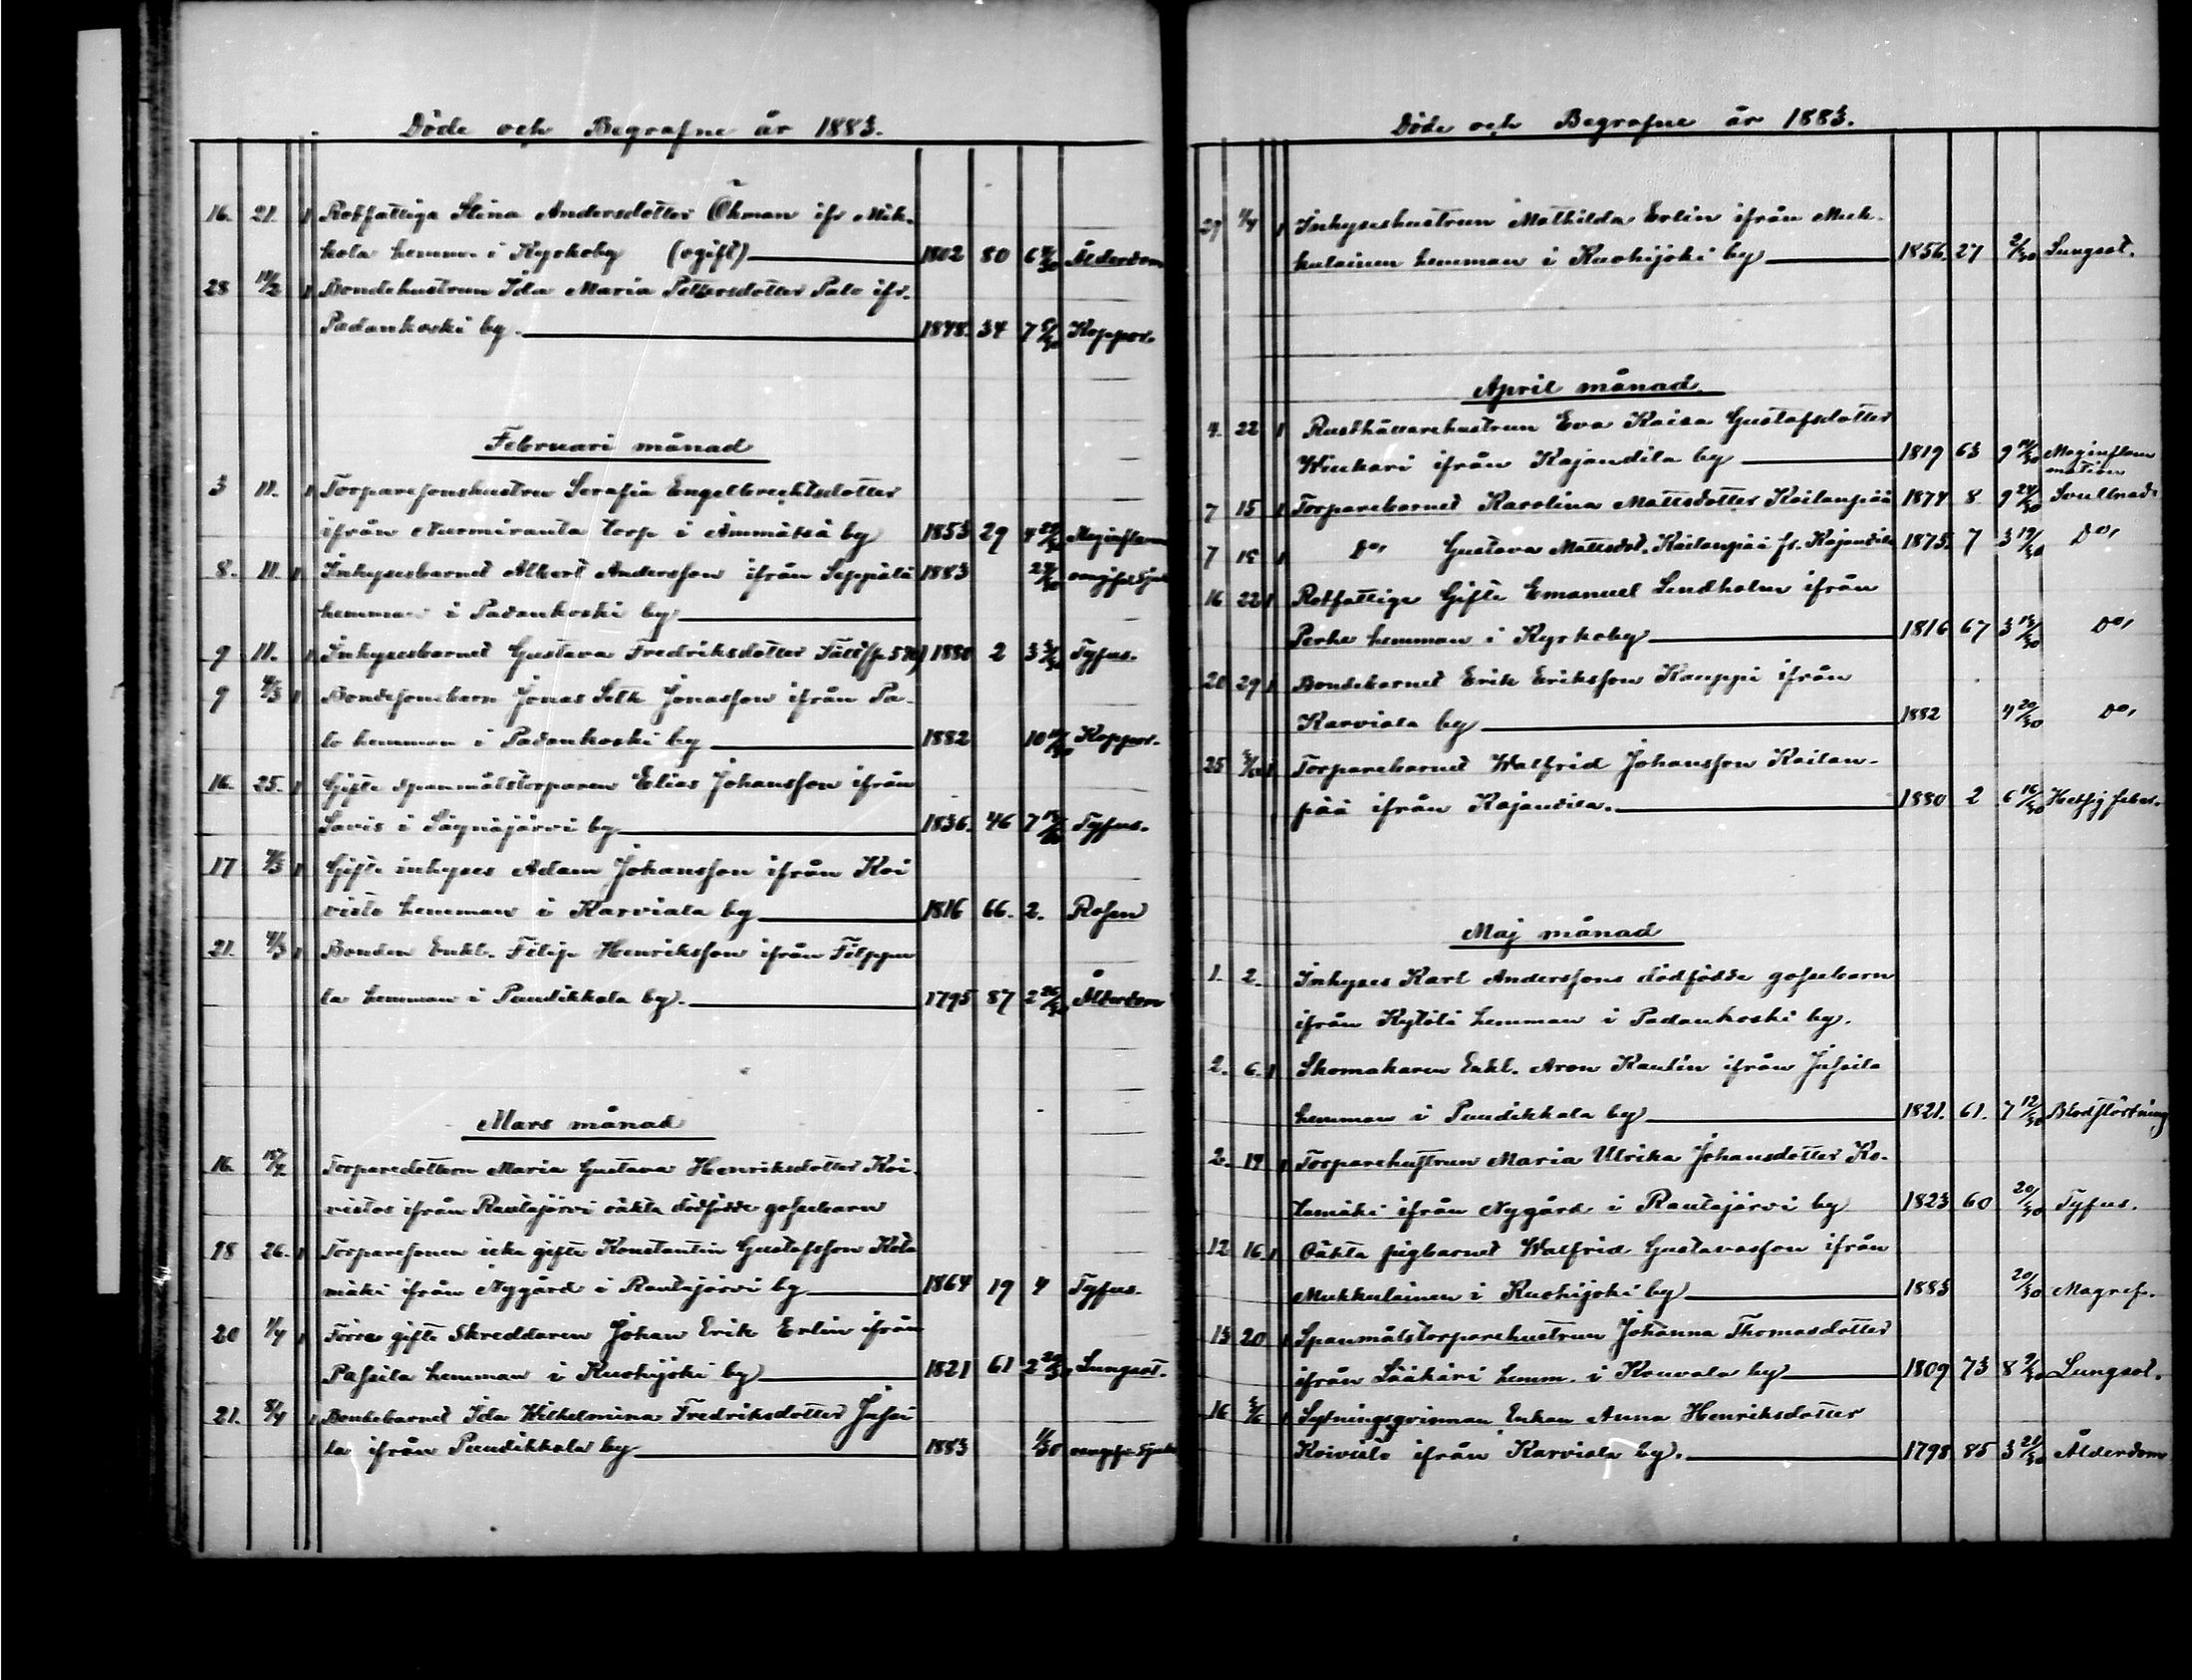 Döde och Begrafne år 1883.
16. 21. 1 Rotfattiga Stina Andersdotter Öhman ifr Mik-
kola hemman i Kyrkoby (ogift) 1802 80 6 Ålderdom
28 11/2 1 Bondehustrun Ida Maria Pettersdotter Palo ifr.
Padankoski by. 1848. 34 7 Koppor.
Februari månad
3 11. 1 Torparesonshustru Serafia Engelbrechtsdotter
ifrån Nurmiranta torp i Ämmätsä by 1853 29 4 Maginflam
8. 11. 1 Inhysesbarnet Albert Andersson ifrån Seppälä 1883
hemman i Padankoski by
9 11. 1 Inhysesbarnet Gustava Fredriksdotter 1880 2 3 Tyfus.
9 4/3 1 Bondesonsbarn Jonas Seth Jonasson ifrån Pa-
lo hemman i Padankoski by 1882 10 Koppor.
16. 25. 1 Gifte Spanmålstorparen Elias Johansson ifrån
Savis i Sägnäjärvi by 1836. 46 7 Tyfus.
17 4/3 1 Gifte inhyses Adam Johansson ifrån Koi
visto hemman i Karviala by 1816 66. 2. Rosen
21. 4/3 1 Bonden Enkl. Filip Henriksson ifrån Filppu
la hemman i Puudikkala by. 1795 87 2 26/30 Ålderdom
Mars månad
16. Torparedottern Maria Gustava Henriksdotter Koi-
vistos ifrån Rautajärvi oäkta dödfödde gossebarn
18 26. 1 Torparesonen icke gifte Konstantin Gustafsson Kota
mäki ifrån Nygård i Rautajärvi by 1864 19 4 Tyfus.
20 1/4 1 Förre gifte Skreddaren Johan Erik Erlin ifrån
Passila hemman i Kuohijoki by 1821 61 2 Lungsot.
21. 8/4 1 Bondebarnet Ida Wilhelmina Fredriksdotter Jussi
la ifrån Puudikkala by 1883 1/30
Döde och Begrafne år 1883.
29 1/4 1 Inhyseshustrun Mathilda Erlin ifrån Muk-
kulainen hemman i Kuohijoki by 1856. 27 2/30 Lungsot.
April månad.
4. 22 1 Rusthållarehustrun Eva Kaisa Gustafsdotter
Wiukari ifrån Kajandila by 1819 63 9 Maginflam
mation
7 15 1 Torparebarnet Karolina Mattsdotter Kailanpää 1874 8 9 24/30 Svullnad
7 15 1 Do, Gustava Mattsdot. Kailanpää fr. Kajandila 1875. 7 3 19/30 Do,
16 22 1 Rotfattige Gifte Emanuel Lindholm ifrån
Perhe hemman i Kyrkoby 1816 67 3 Do,
20 29 1 Bondebarnet Erik Eriksson Kauppi ifrån
Karviala by 1882 4 20/30 Do,
25 1 Torparebarnet Walfrid Johansson Kailan-
pää ifrån Kajandila. 1880 2 6 16/30 Hetsig feber.
Maj månad
1. 2. Inhyses Karl Anderssons dödfödde gossebarn
ifrån Kylölä hemman i Padankoski by.
2. 6. 1 Skomakaren Enkl. Aron Kaulin ifrån Jussila
hemman i Puudikkala by 1821. 61. 7 12/30 Blodstörtning
2. 14 1 Torparehustrun Maria Ulrika Johansdotter Ko-
tamäki ifrån Nygård i Rautajärvi by 1823 60 20/30 Tyfus.
12 16. 1 Oäkta pigbarnet Walfrid Gustavasson ifrån
Mukkulainen i Kuohijoki by 1883 20/30 Magref.
15 20 1 Spanmålstorparehustrun Johanna Thomasdotter
ifrån Lääkäri hemm. i Kouvala by 1809 73 8 9/30 Lungsot.
16 3/6 1 Sytningsqvinnan Enkan Anna Henriksdotter
Koivisto ifrån Karviala by. 1798 85 3 21/30 Ålderdom